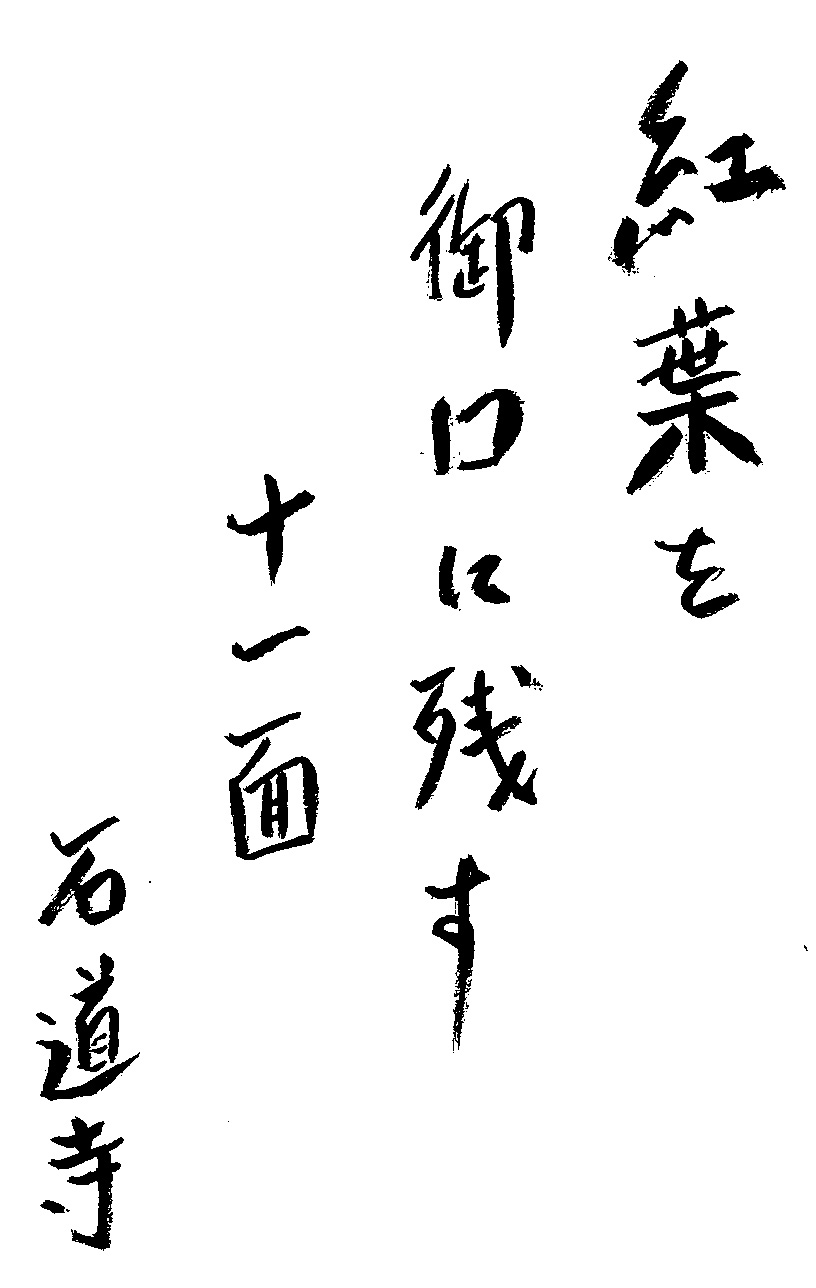 紅葉を
御口に残す
十一面
石道寺